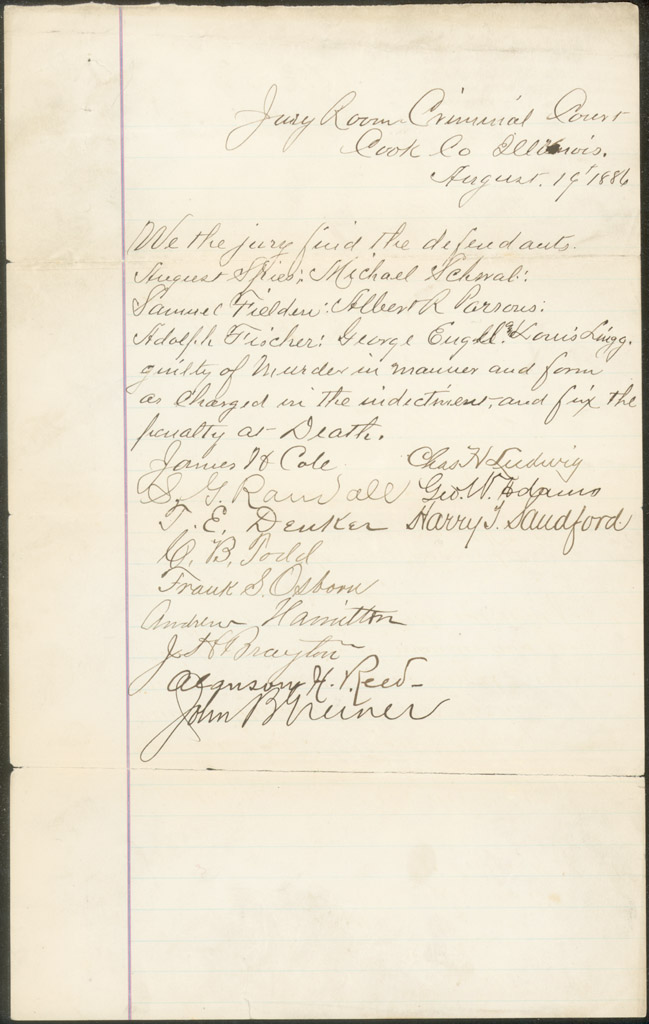 Jury Room Criminal Court
Cook Co Illinois.
August. 19' 1886
We the jury find the defendants.
August Spies: Michael Schwab:
Samuel Fielden: Albert R Parsons:
Adolph Fischer: George Engel & Louis Lingg.
guilty of Murder in manner and form
as charged in the indictment, and fix the
penalty at Death.
James H Cole Chas H Ludwig
S. G. Randall Geo. W. Adams
T. E. Denker Harry T. Sandford
C. B. Todd
Frank S. Osborn
Andrew Hamilton
J H Brayton
Alanson H. Reed
John B Greiner